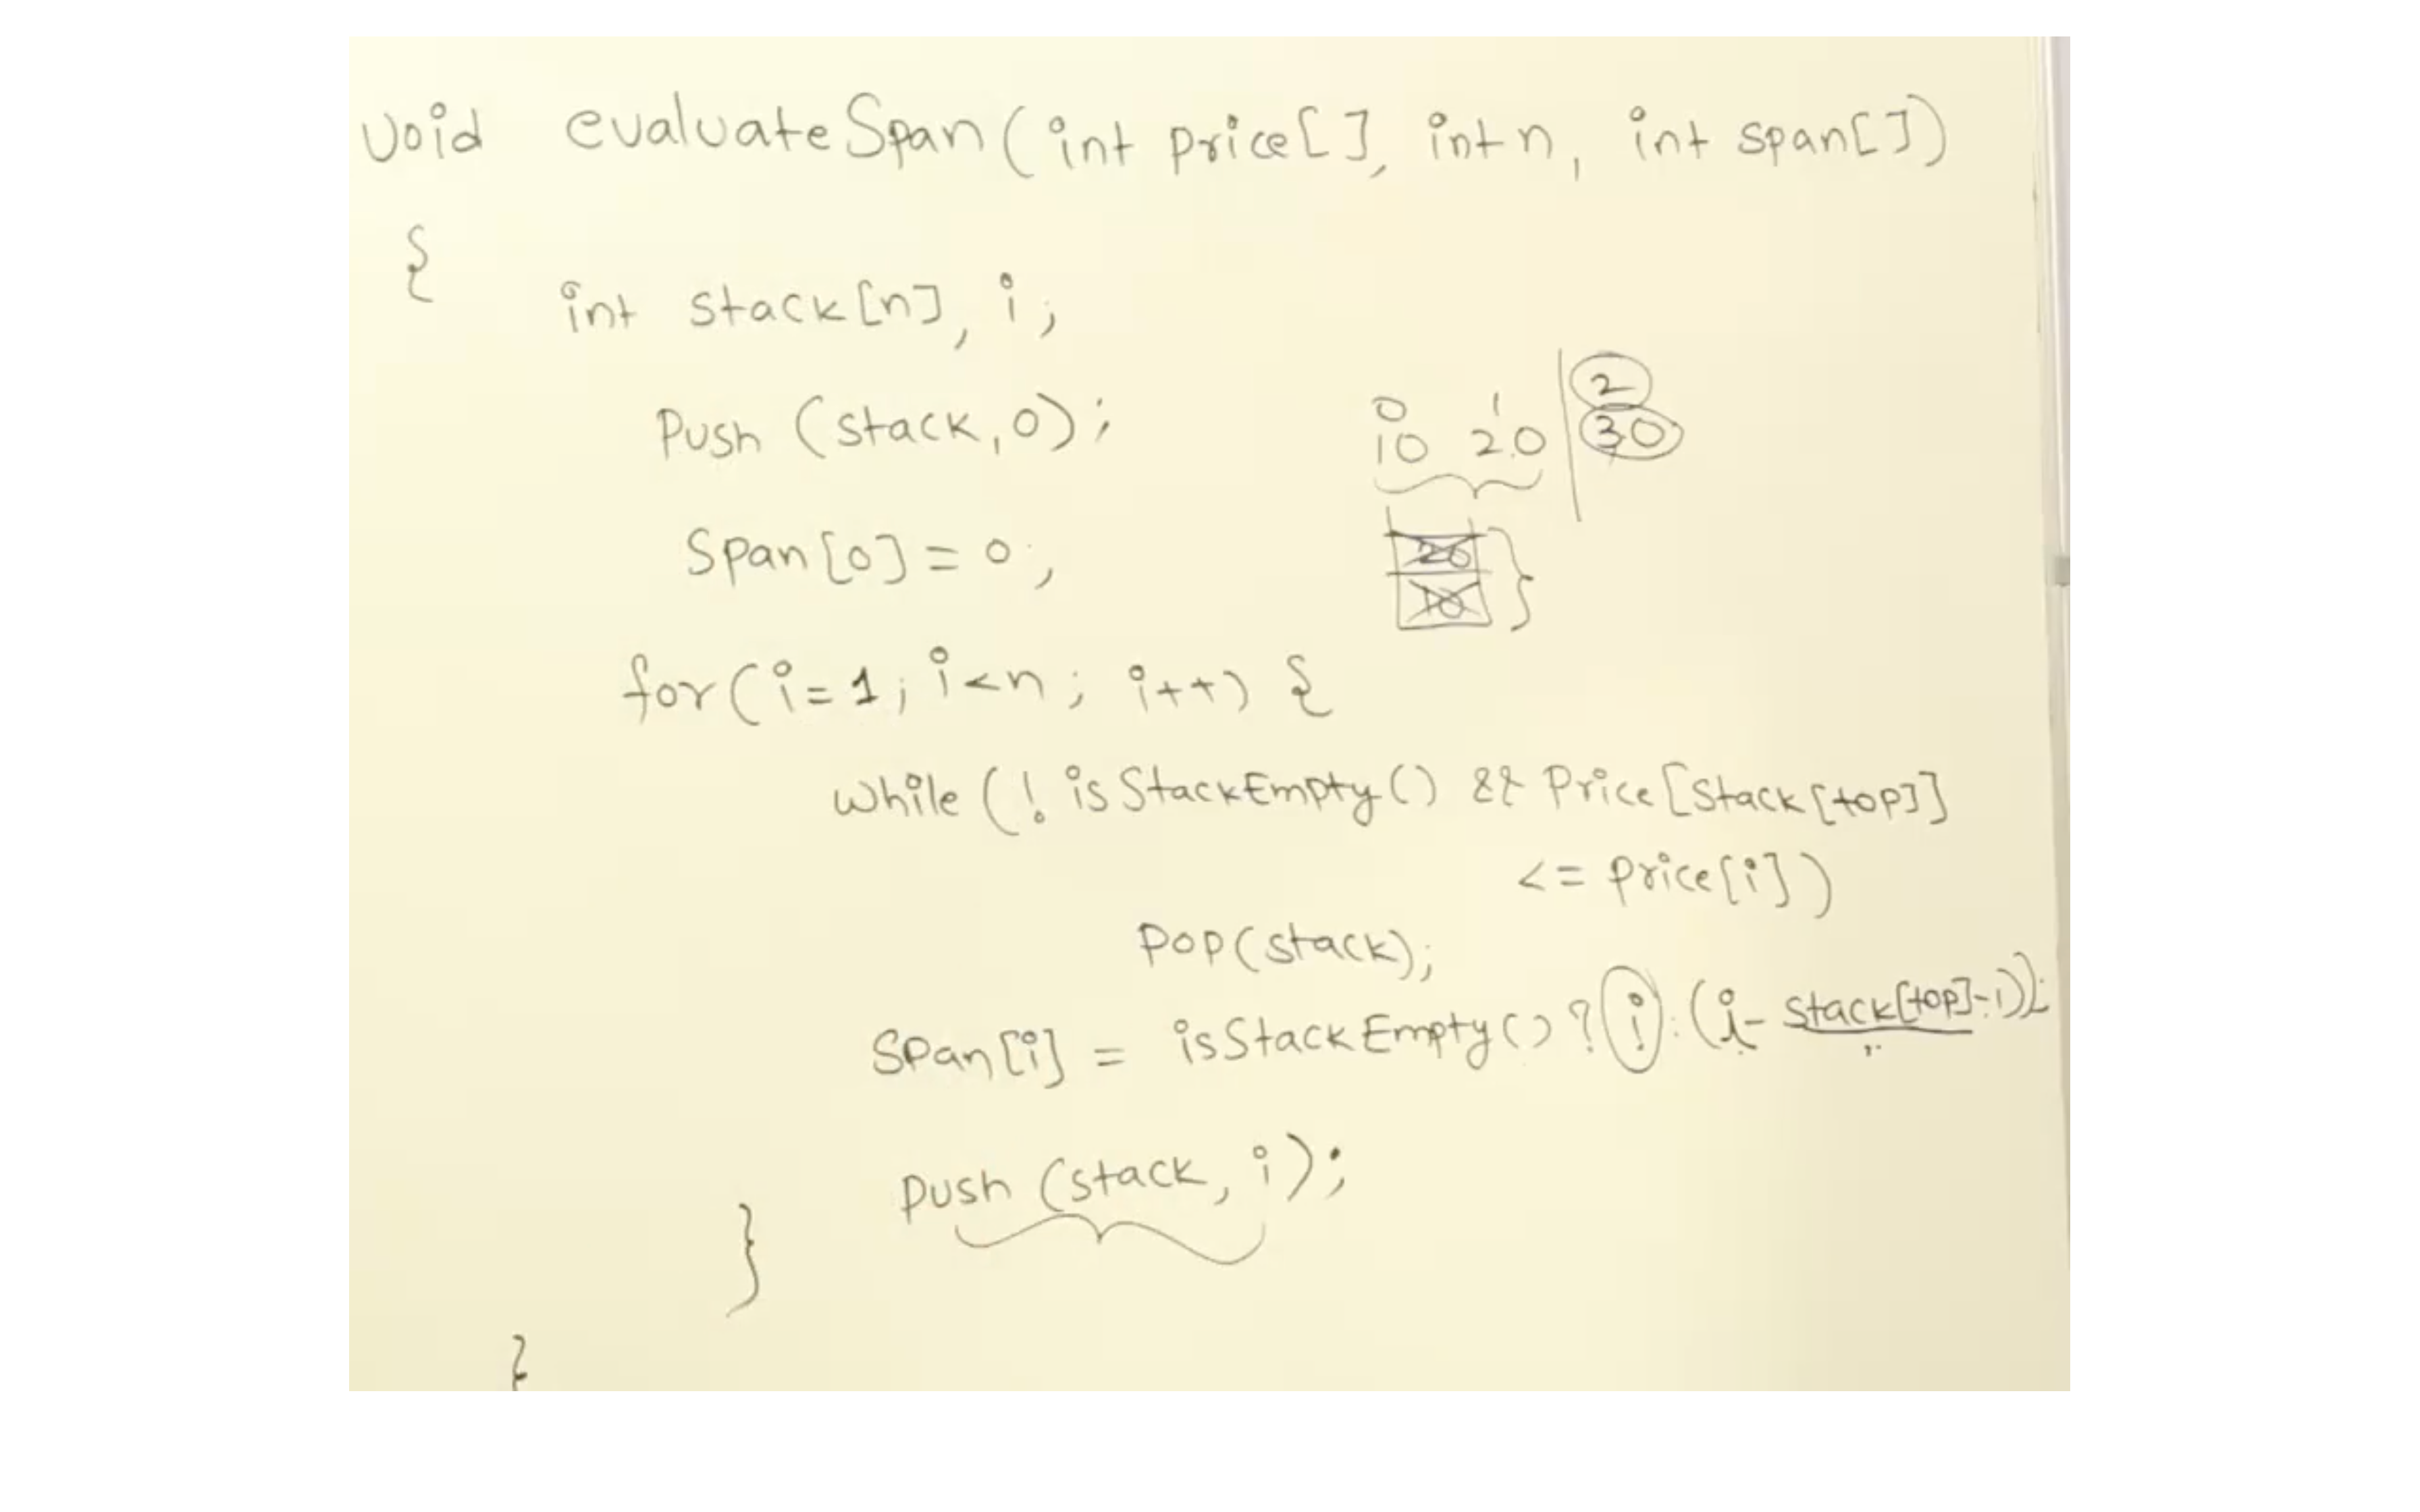 void evaluateSpan(int price[], int n, int span[])
{
int stack[n], i;
Push (stack,0);
Span[0] = 0;
0 1 2
10 20 30
20
10
for(i=1; i<n; i++) {
while (! isStackEmpty() && Price[stack[top]]
<= price[i])
POP(stack);
SPan[i] = isStackEmpty() ? i : (i- stack[top]-1));
push (stack, i);
}
}